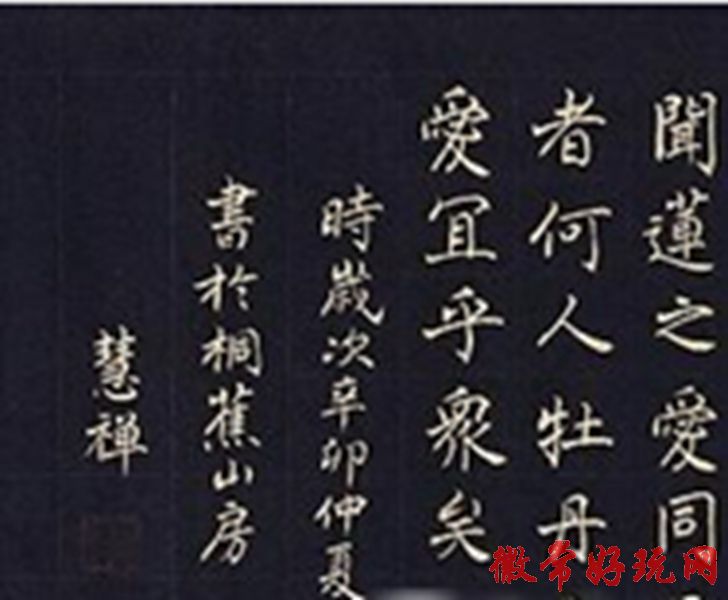 聞蓮之愛同
者何人牡丹
愛宜乎衆矣
時歲次辛卯仲夏
書於桐蕉山房
慧禅
徽帝好玩网